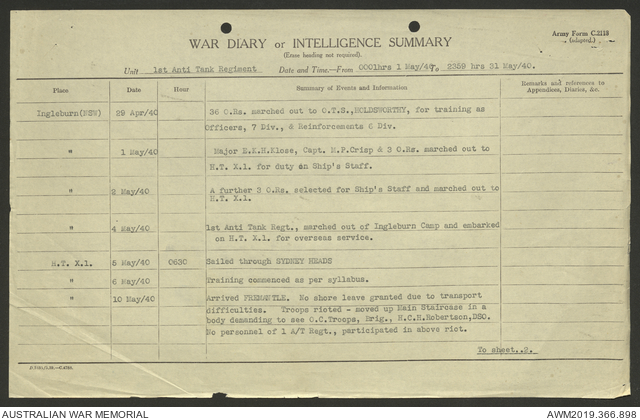 Army Form C.2118
(adapted.)
WAR DIARY or INTELLIGENCE SUMMARY
(Erase heading not required).
Unit 1st Anti Tank Regiment Date and Time.—From 0001hrs 1 May/40, 2359 hrs 31 May/40.
Place Date Hour Summary of Events and Information Remarks and references to
Appendices, Diaries, &c.
Ingleburn(NSW) 29 Apr/40 36 O.Rs. marched out to O.T.S.,HOLDSWORTHY, for training as
Officers, 7 Div., & Reinforcements 6 Div.
" 1 May/40 Major E.K.H.Klose, Capt. M.P.Crisp & 3 O.Rs. marched out to
H.T. X.1. for duty on Ship's Staff.
" 2 May/40 A further 3 O.Rs. selected for Ship's Staff and marched out to
H.T. X.1.
" 4 May/40 1st Anti Tank Regt., marched out of Ingleburn Camp and embarked
on H.T. X.1. for overseas service.
H.T. X.1. 5 May/40 0630 Sailed through SYDNEY HEADS
" 6 May/40 Training commenced as per syllabus.
" 10 May/40 Arrived FREMANTLE. No shore leave granted due to transport
difficulties. Troops rioted - moved up Main Staircase in a
body demanding to see O.C.Troops, Brig., H.C.H.Robertson,DSO.
No personnel of 1 A/T Regt., participated in above riot.
To sheet..2.
AUSTRALIAN WAR MEMORIAL AWM2019.366.898